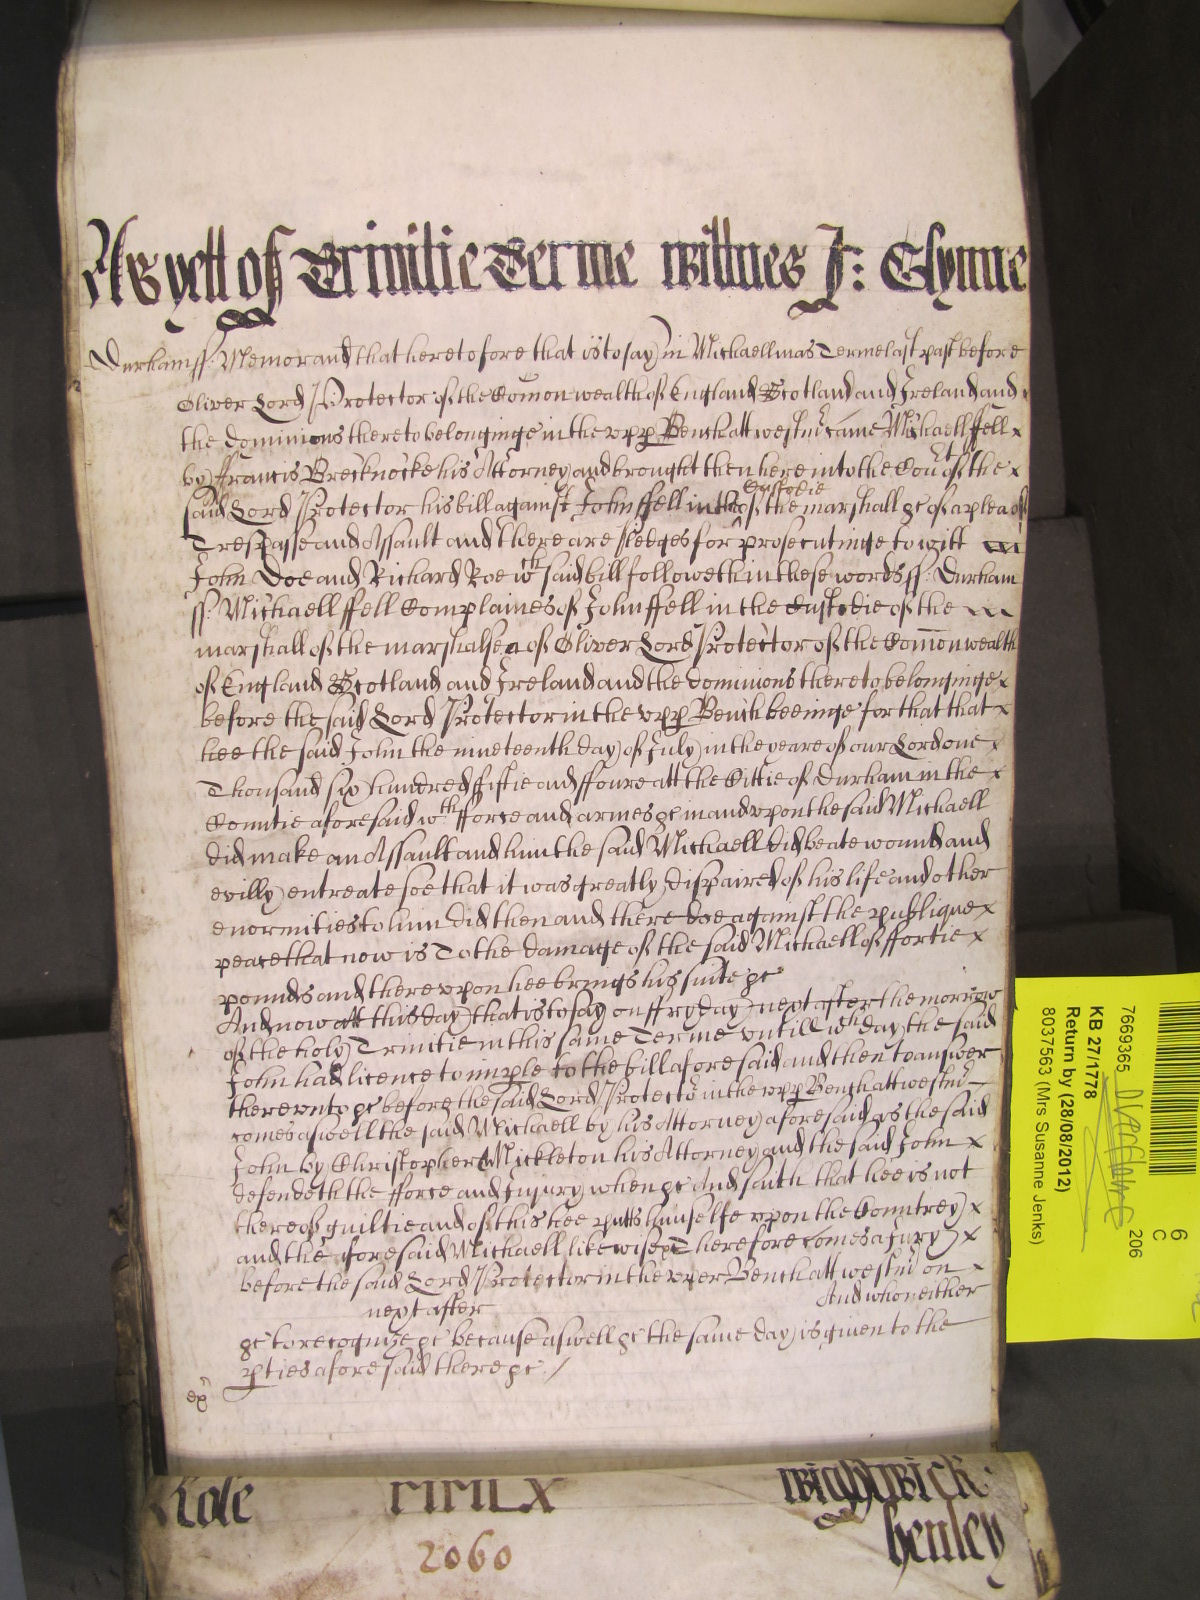 As yett of Trinitie Terme Wittnes J: Glynne
Durham ss: Memorand that heretofore that is to say in Michaellmas Terme last past before
Oliver Lord Protector of the Comon wealth of England Scotland and Ireland and
the dominions thereto belonginge in the upp Bench att Westmr came Michaell ffell x
by ffrancis Brecknocke his Attorney and brought then here into the Court of the x
said Lord Protector his bill against John ffell in the Custodie of the marshall &c of a plea of
Trespasse and Assault and there are pledges for prosecutinge to witt
John Doe and Richard Roe wch said bill followeth in these words ss: Durham
ss: Michaell ffell Complaines of John ffell in the Custodie of the
marshall of the marshalsea of Oliver Lord Protector of the Comon wealth
of England Scotland and Ireland and the dominions thereto belonginge x
before the said Lord Protector in the upp Bench beeinge for that that x
hee the said John the nineteenth day of July in the yeare of our Lord one x
Thousand six hundred fiftie and ffoure att the Cittie of Durham in the x
Countie aforesaid wth fforce and armes &c in and upon the said Michaell
did make an Assault and him the said Michaell did beate wound and
evilly entreate soe that it was greatly dispaired of his life and other
enormities to him did then and there doe against the publique x
peace that now is To the damage of the said Michaell of ffortie x
pounds and thereupon hee brings his suite &c
And now att this day that is to say on ffryday next after the morrow
of the holy Trinitie in this same Terme untill wch day the said
John had licence to imple to the bill aforesaid and then to answer
thereunto &c before the said Lord Protector in the upp Bench att Westmr
comes aswell the said Michaell by his Attorney aforesaid as the said
John by Christopher Mickleton his Attorney and the said John x
defendeth the fforce and Injury when &c And saith that hee is not
thereof guiltie and of this hee putts himselfe upon the Countrey x
and the aforesaid Michaell likewise &c Therefore comes a Jury x
before the said Lord Protector in the upper Bench att Westmr on x
next after And who neither
&c to recognize &c because aswell &c the same day is given to the
pties aforesaid there &c /
Role
Wightwick
henley
2060
7669365
206
6
C
KB 27/1778
Return by (28/08/2012)
8037563 (Mrs Susanne Jenks)